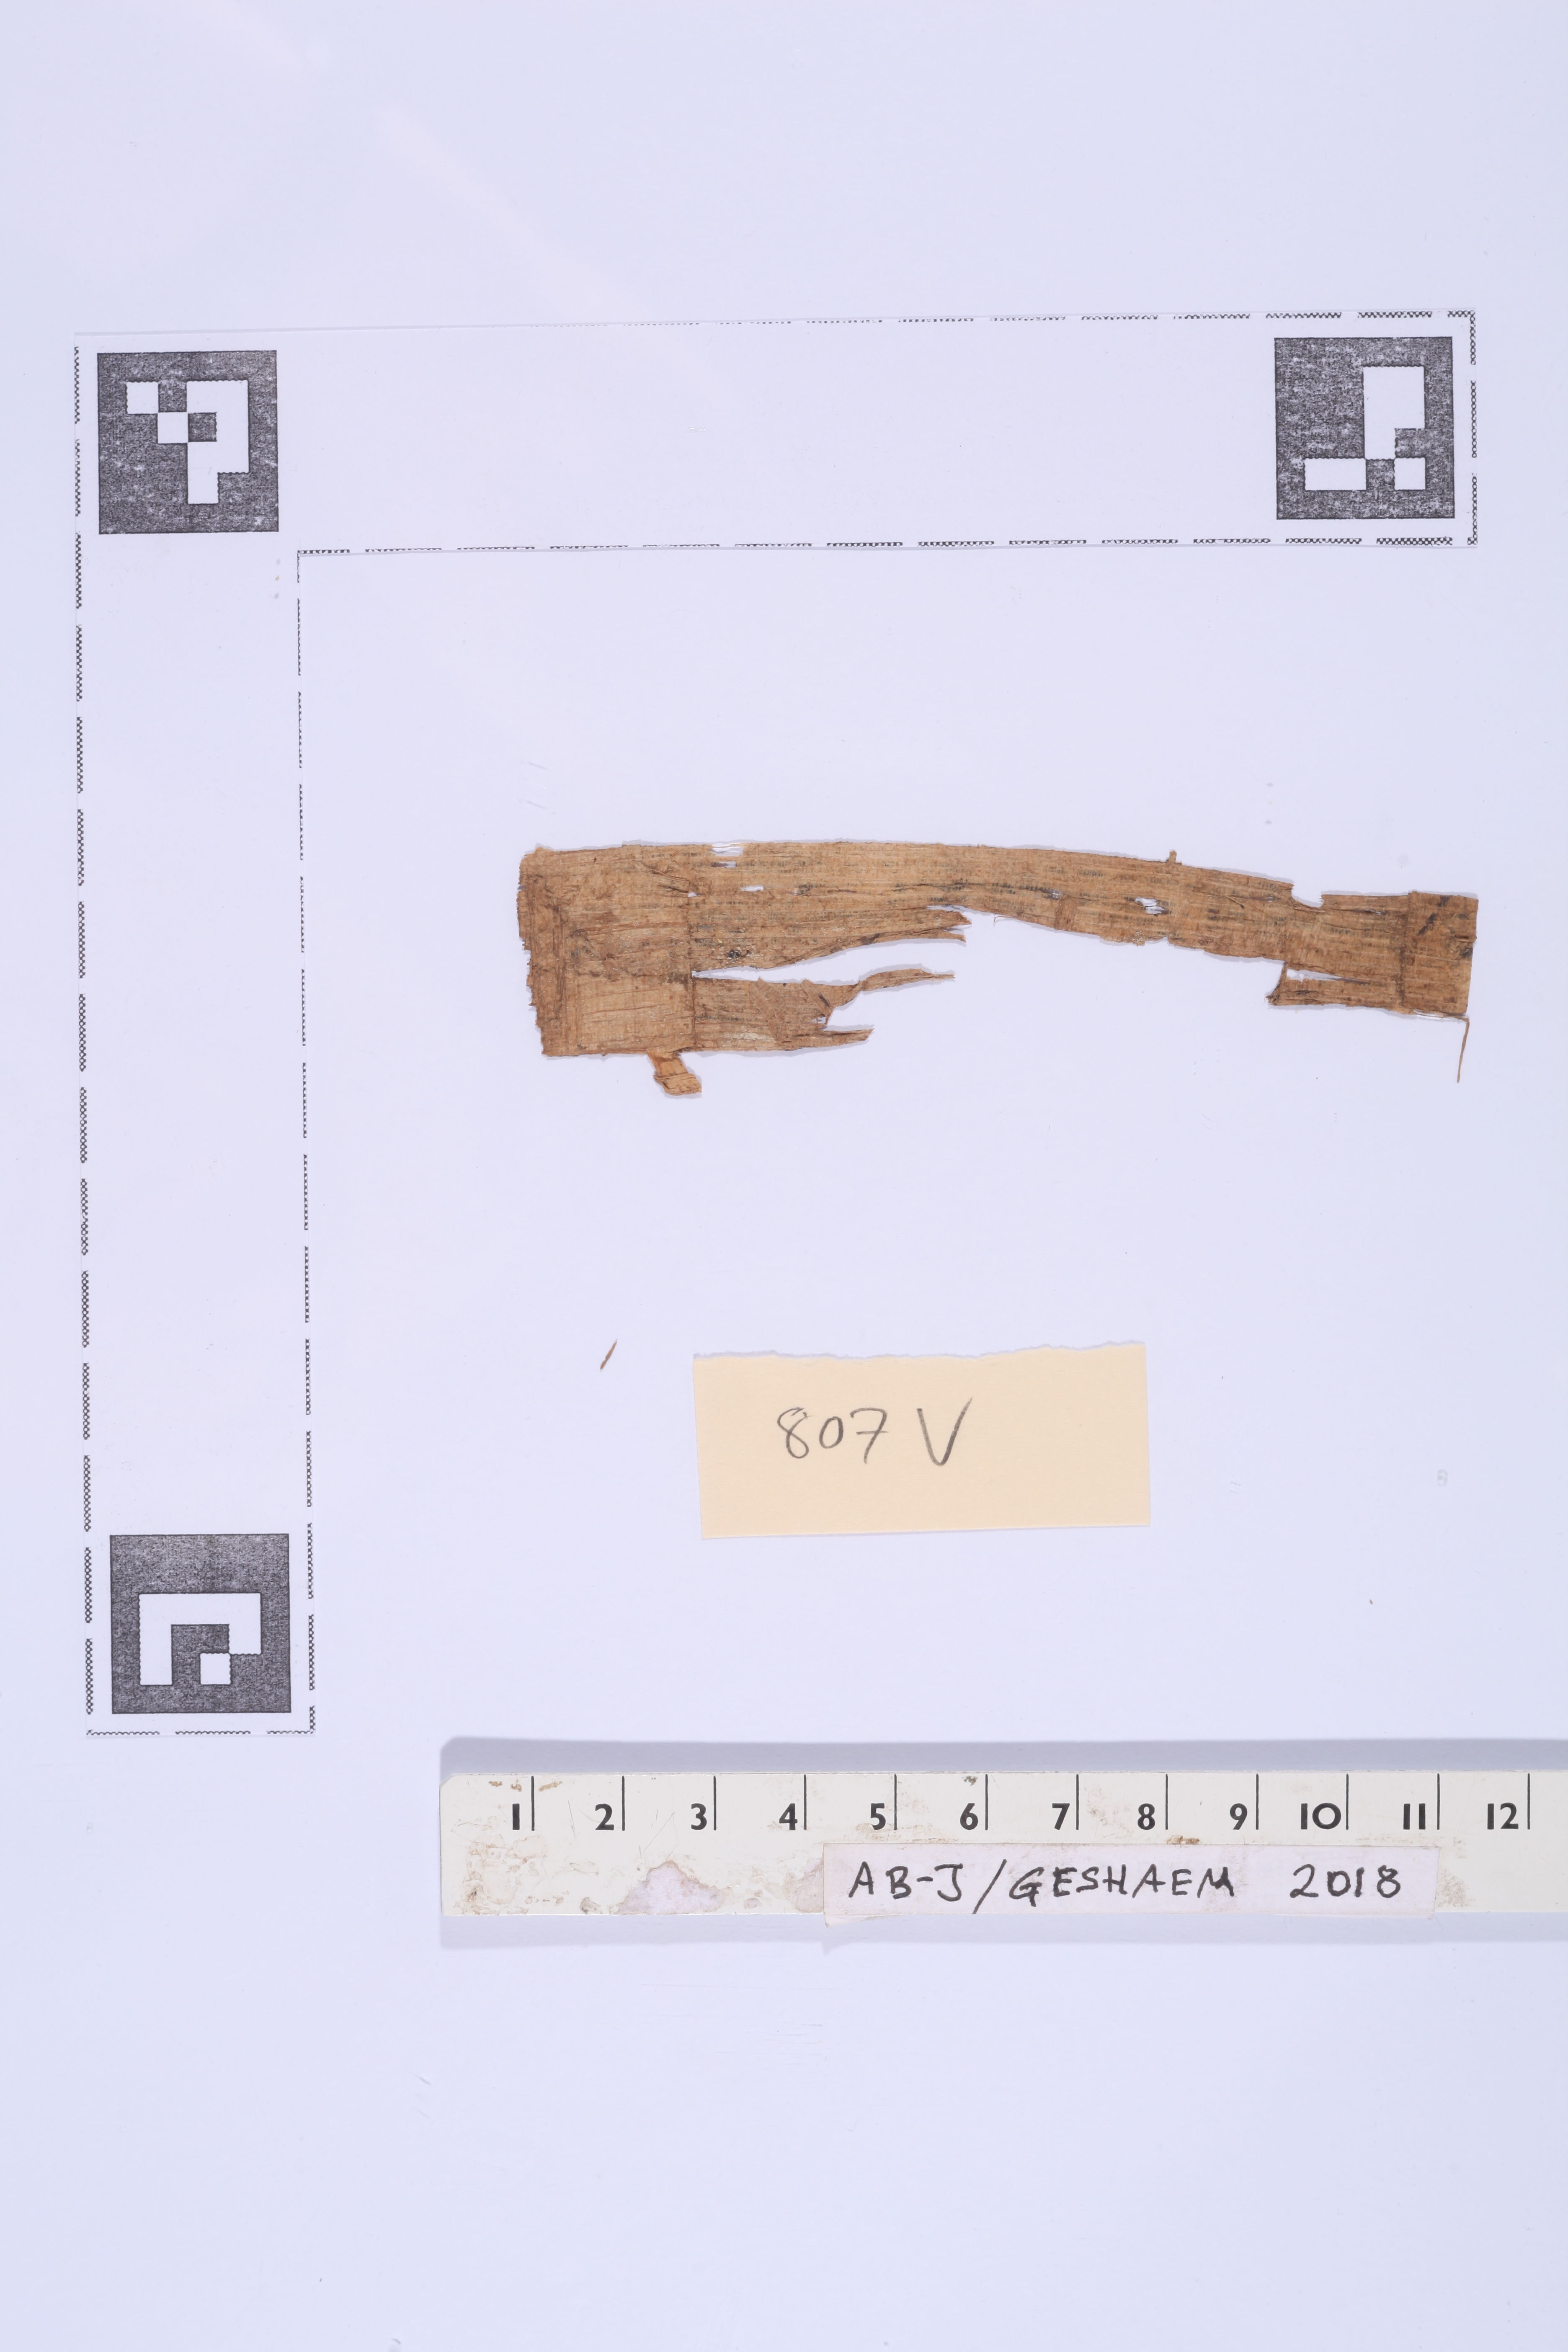 807 V
1 2 3 4 5 6 7 8 9 10 11 12
AB-J/GESHAEM 2018